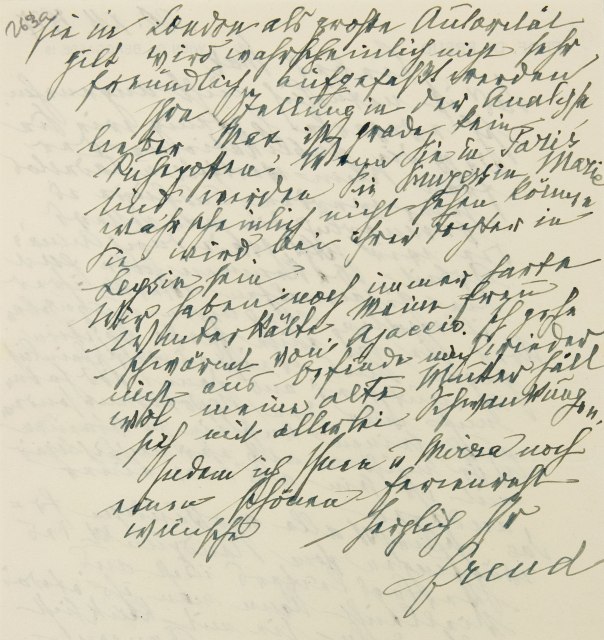 263a
sie in London als große Autorität
gilt wird wahrscheinlich nicht sehr
freundlich aufgefaßt werden
Ihre Stellung in der Analyse
lieber Max ist grade kein
Ruheposten. Wenn Sie in Paris
sind werden Sie Marie
wahrscheinlich nicht sehen können
Sie wird bei ihrer Tochter in
Leysin sein
Wir haben noch immer harte
Winterkälte Meine Frau
schwärmt von Ajaccio. Ich gehe
nicht aus befinde mich wieder
wol meine alte Mutter hält
sich mit allerlei Schwankungen.
Indem ich Ihnen u Mirra noch
einen schönen Ferienrest
wünsche herzlich Ihr
Freud